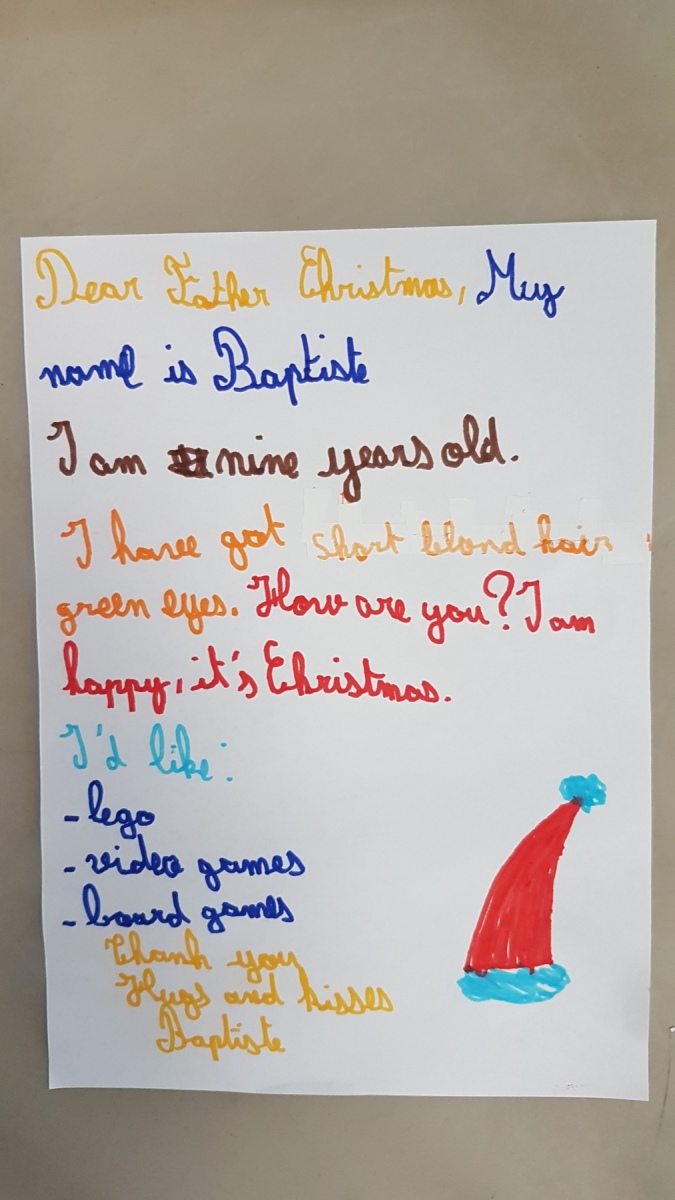 Dear Father Christmas, My
name is Baptiste
I am nine years old.
I have got short blond hair
green eyes. How are you? I am
happy, it's Christmas.
I'd like:
- lego
- video games
- board games
Thank you
Hugs and kisses
Baptiste